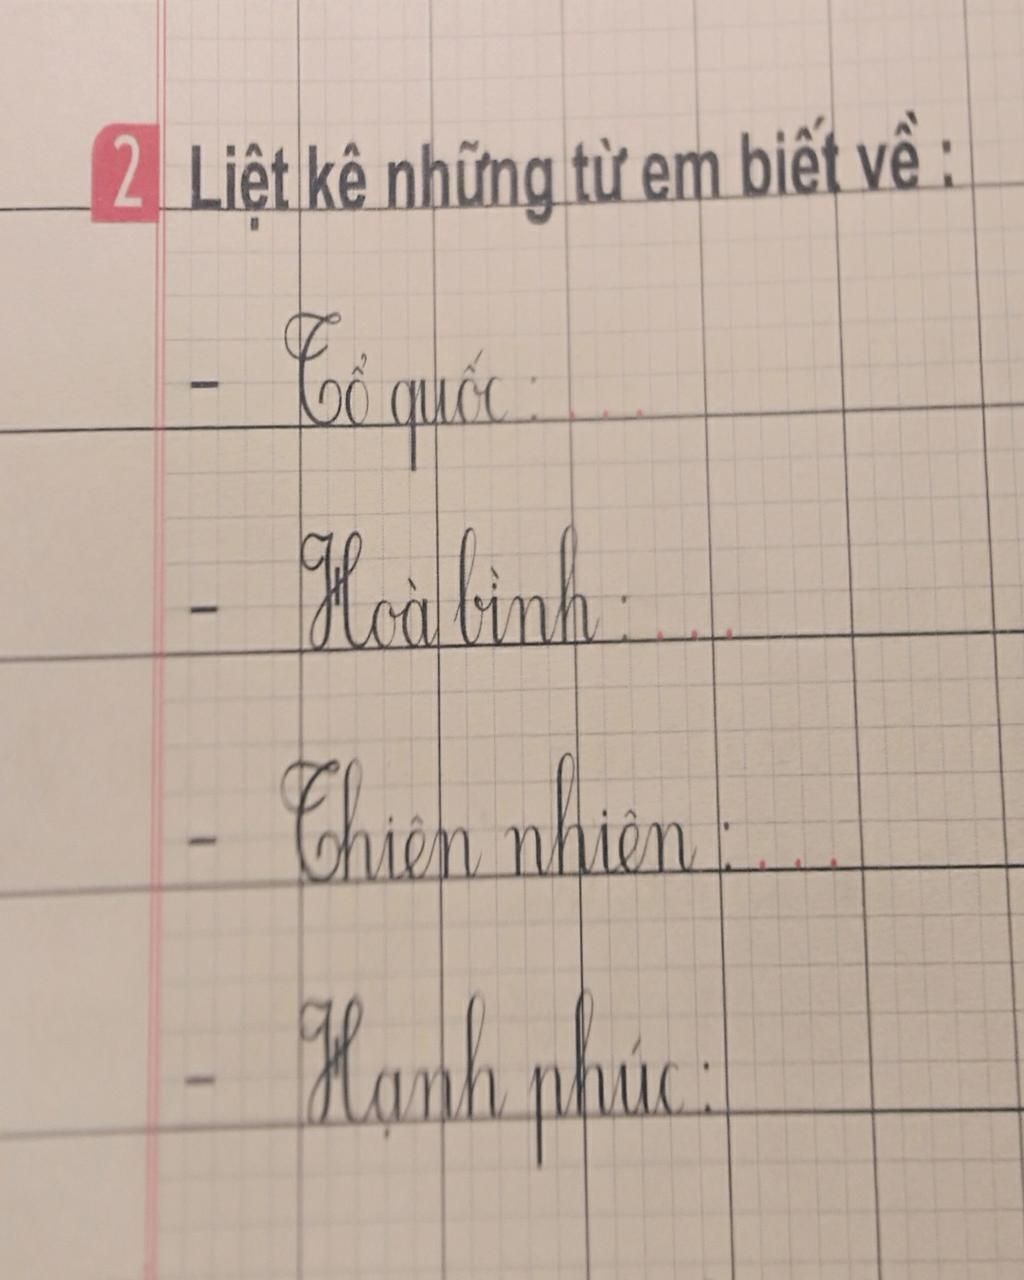 2 Liệt kê những từ em biết về :
- Tổ quốc : . . .
- Hoà bình : . . .
- Thiên nhiên : . . .
- Hạnh phúc :